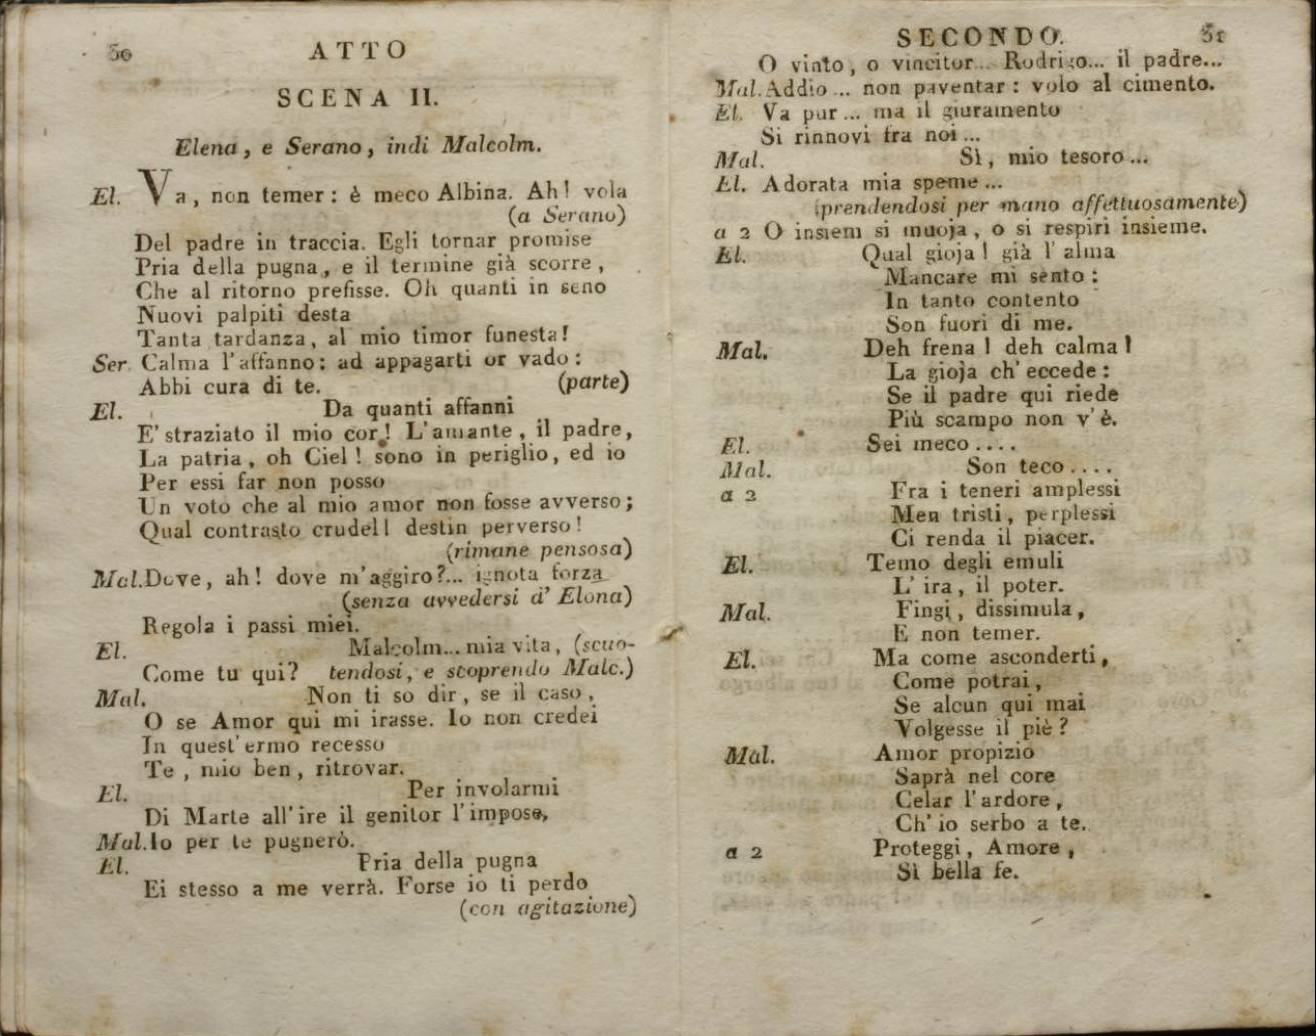 30
ATTO
SCENA II.
Elena, e Serano, indi Malcolm.
El. Va, non temer: è meco Albina. Ah! vola
(a Serano)
Del padre in traccia. Egli tornar promise
Pria della pugna, e il termine già scorre,
Che al ritorno prefisse. Oh quanti in seno
Nuovi palpiti desta
Tanta tardanza, al mio timor funesta!
Ser. Calma l'affanno: ad appagarti or vado:
Abbi cura di te. (parte)
El. Da quanti affanni
E' straziato il mio cor! L'amante, il padre,
La patria, oh Ciel! sono in periglio, ed io
Per essi far non posso
Un voto che al mio amor non fosse avverso;
Qual contrasto crudel! destin perverso!
(rimane pensosa)
Mal. Dove, ah! dove m'aggiro?... ignota forza
(senza avvedersi d' Elena)
Regola i passi miei.
El. Malcolm... mia vita, (scuo-
Come tu qui? tendosi, e scoprendo Malc.)
Mal. Non ti so dir, se il caso,
O se Amor qui mi trasse. Io non credei
In quest' ermo recesso
Te, mio ben, ritrovar.
El. Per involarmi
Di Marte all' ire il genitor l'impose,
Mal. Io per te pugnerò.
El. Pria della pugna
Ei stesso a me verrà. Forse io ti perdo
(con agitazione)
SECONDO. 31
O vinto, o vincitor... Rodrigo... il padre...
Mal. Addio... non paventar: volo al cimento.
El. Va pur... ma il giuramento
Si rinnovi fra noi...
Mal. Sì, mio tesoro...
El. Adorata mia speme...
(prendendosi per mano affettuosamente)
a 2 O insiem si muoja, o si respiri insieme.
El. Qual gioja! già l' alma
Mancare mi sento:
In tanto contento
Son fuori di me.
Mal. Deh frena! deh calma!
La gioja ch' eccede:
Se il padre qui riede
Più scampo non v' è.
El. Sei meco....
Mal. Son teco....
a 2 Fra i teneri amplessi
Men tristi, perplessi
Ci renda il piacer.
El. Temo degli emuli
L' ira, il poter.
Mal. Fingi, dissimula,
E non temer.
El. Ma come asconderti,
Come potrai,
Se alcun qui mai
Volgesse il piè?
Mal. Amor propizio
Saprà nel core
Celar l'ardore,
Ch' io serbo a te.
a 2 Proteggi, Amore,
Sì bella fe.